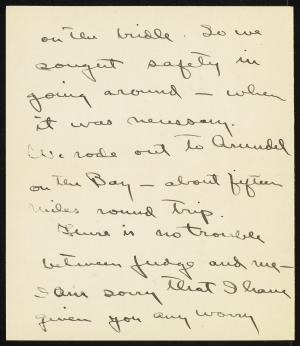 on the bridle. So we
sought safety in
going around – when
it was necessary.
We rode out to Arundel
on the Bay – about fifteen
miles round trip.
There is no trouble
between Judge and me –
I am sorry that I have
given you any worry